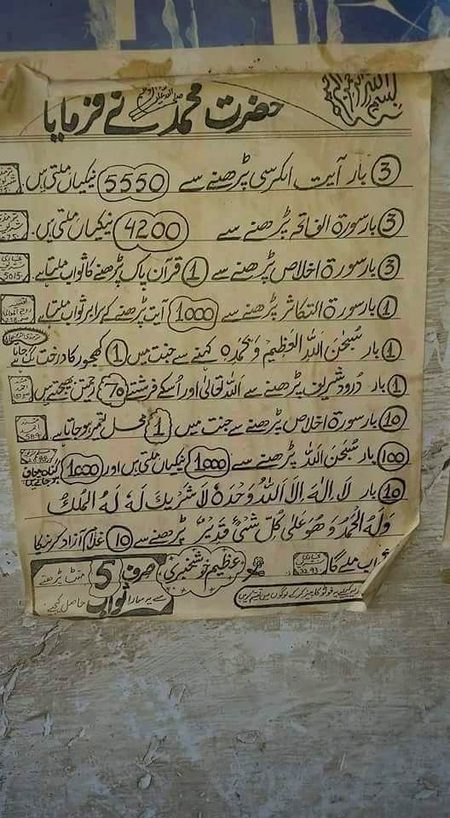 بسم اللہ الرحمن الرحیم
حضرت محمد ﷺ نے فرمایا
3 بار آیت الکرسی پڑھنے سے 5550 نیکیاں ملتی ہیں۔
3 بار سورۃ الفاتحہ پڑھنے سے 4200 نیکیاں ملتی ہیں۔
3 بار سورۃ اخلاص پڑھنے سے 1 قرآن پاک پڑھنے کا ثواب ملتا ہے۔ 5015
1 بار سورۃ التکاثر پڑھنے سے 1000 آیت پڑھنے کے برابر ثواب ملتا ہے
1 بار سُبْحٰنَ اللہِ الْعَظِیْمِ وَبِحَمْدِہٖ کہنے سے جنت میں 1 کھجور کا درخت لگ جاتا ہے
1 بار درود شریف پڑھنے سے اللہ تعالیٰ اور اسکے فرشتے 70 رحمتیں بھیجتے ہیں
10 بار سورۃ اخلاص پڑھنے سے جنت میں 1 محل تعمیر ہو جاتا ہے
100 بار سُبْحٰنَ اللہ پڑھنے سے 1000 نیکیاں ملتی ہیں اور 1000 گناہ معاف ہو جاتے ہیں
10 بار لَا اِلٰہَ اِلَّا اللہُ وَحْدَہٗ لَا شَرِیْكَ لَہٗ لَہُ الْمُلْكُ
وَلَہُ الْحَمْدُ وَھُوَ عَلٰی كُلِّ شَیْءٍ قَدِیْرٌ پڑھنے سے 10 غلام آزاد کرنے کا
ثواب ملے گا
عظیم خوشخبری صرف 5 منٹ پڑھنے
سے یہ سارا ثواب حاصل کیجیے